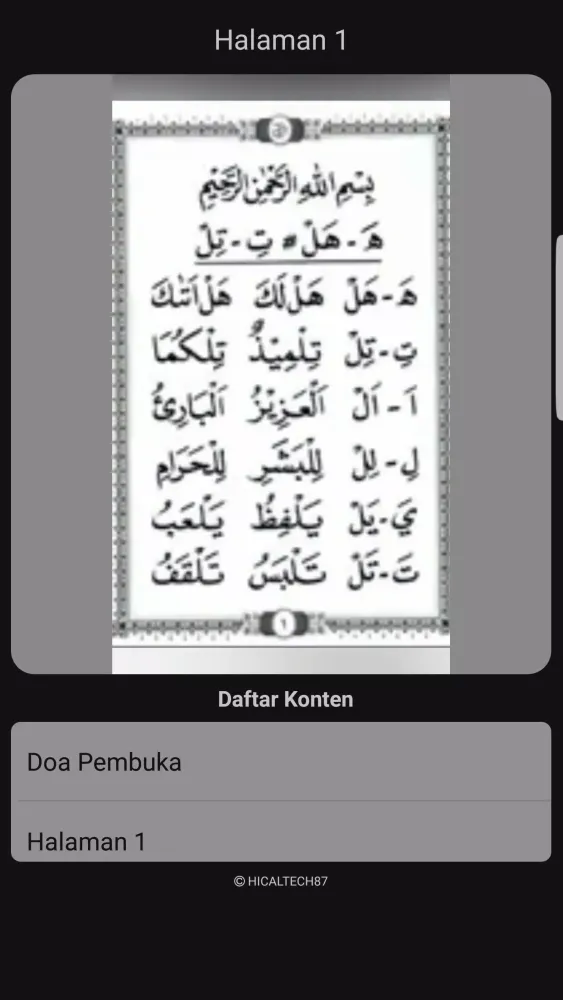 Halaman 1
بِسْمِ اللهِ الرَّحْمٰنِ الرَّحِيْمِ
هَـ - هَلْ # تِـ - تِلْ
هَـ - هَلْ هَلْ لَكَ هَلْ اَتٰىكَ
تِـ - تِلْ تِلْمِيْذٌ تِلْكُمَا
اَ - اَلْ اَلْعَزِيْزُ اَلْبَارِئُ
لِـ - لِلْ لِلْبَشَرِ لِلْحَرَامِ
يَـ - يَلْ يَلْفِظُ يَلْعَبُ
تَـ - تَلْ تَلْبَسُ تَلْقَفُ
١
Daftar Konten
Doa Pembuka
Halaman 1
© HICALTECH87